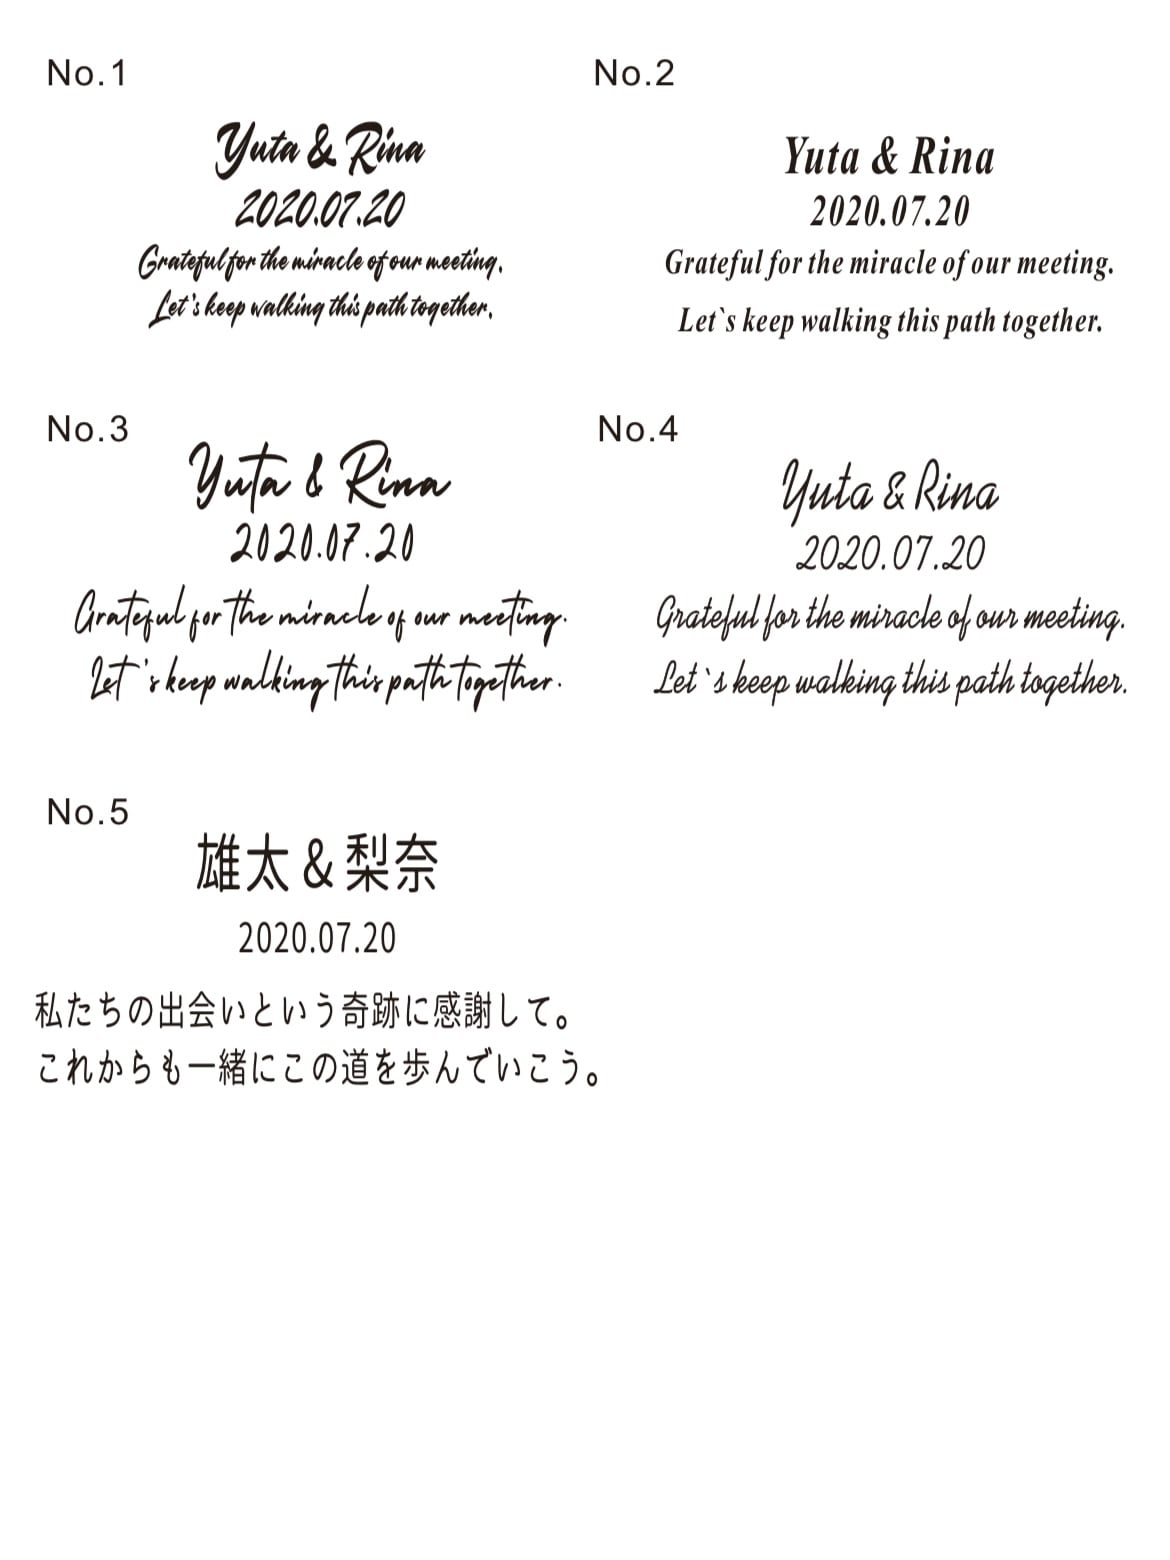 No.1
Yuta & Rina
2020.07.20
Grateful for the miracle of our meeting.
Let's keep walking this path together.
No.2
Yuta & Rina
2020.07.20
Grateful for the miracle of our meeting.
Let`s keep walking this path together.
No.3
Yuta & Rina
2020.07.20
Grateful for the miracle of our meeting.
Let's keep walking this path together.
No.4
Yuta & Rina
2020.07.20
Grateful for the miracle of our meeting.
Let`s keep walking this path together.
No.5
雄太&梨奈
2020.07.20
私たちの出会いという奇跡に感謝して。
これからも一緒にこの道を歩んでいこう。